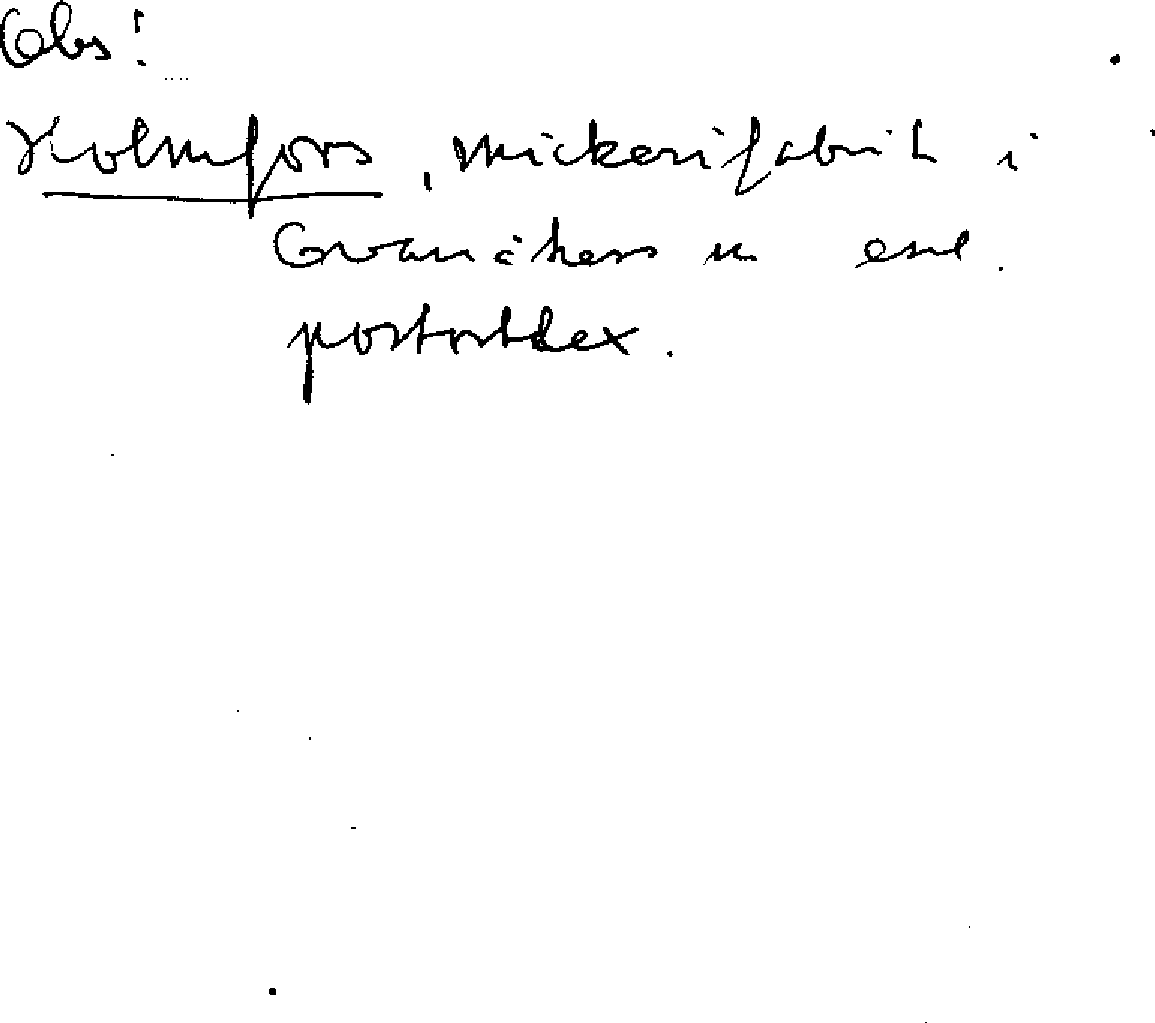 Obs!
Holmfors, snickerifabrik i
Granåkers sn enl.
postortslex.